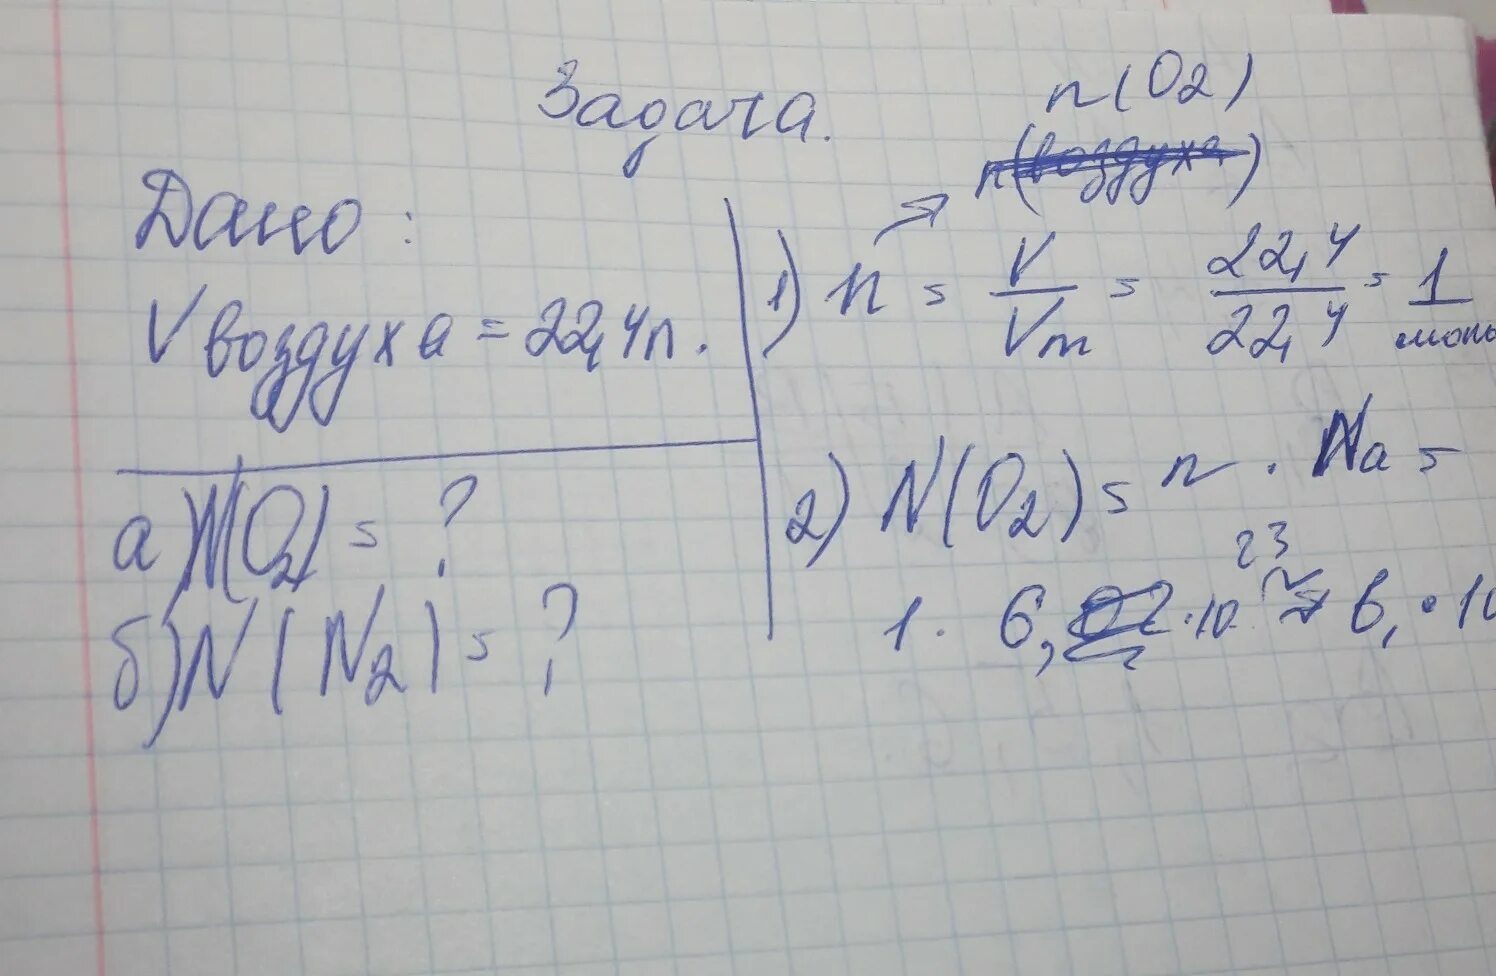 Задача.
Дано:
V воздуха = 22,4 л.
а) N(O2) = ?
б) N(N2) = ?
n(O2)
n(воздуха)
1) n = V/Vm = 22,4/22,4 = 1 моль
2) N(O2) = n · Na =
1 · 6,02 · 10^23 = 6, · 10